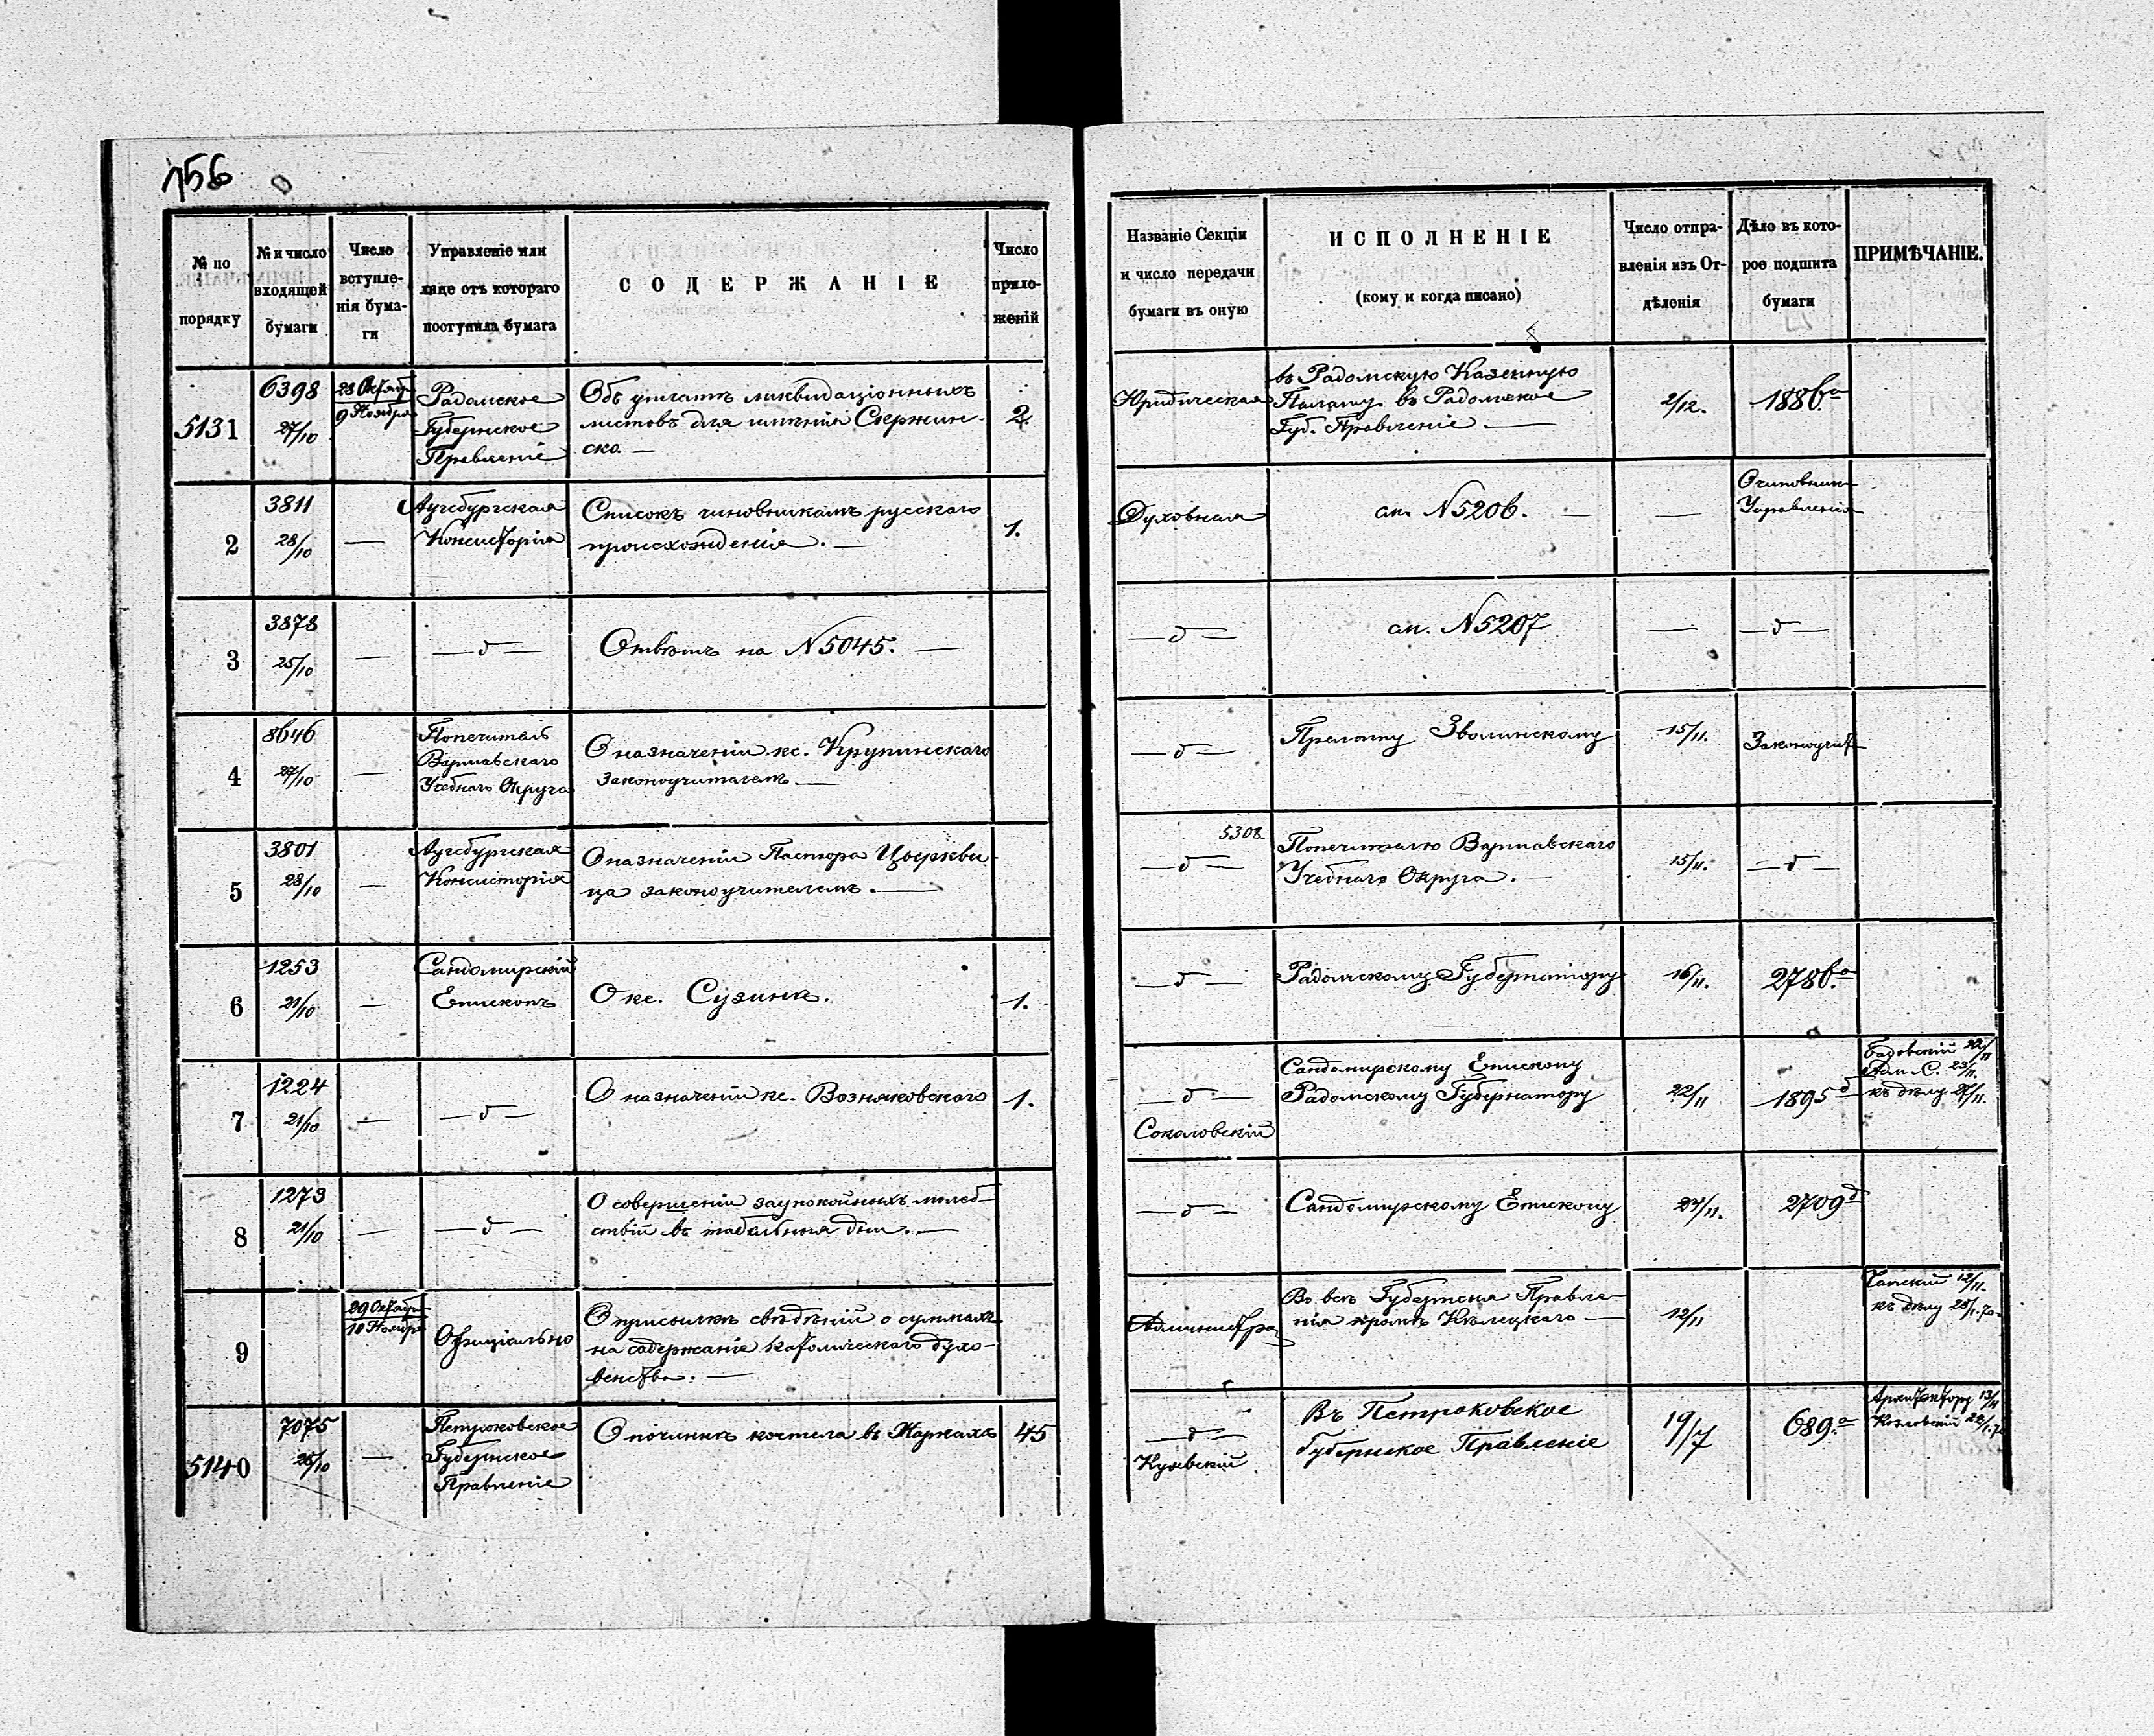 756
№ по порядку
№ и число входящей бумаги
Число вступле-
нія бума-
ги
Управленіе или
лице отъ котораго
поступила бумага
СОДЕРЖАНІЕ
Число
прило-
женій
Названіе Секціи
и число передачи
бумаги въ оную
ИСПОЛНЕНІЕ
(кому и когда писано)
Число отпра-
вленія изъ От-
дѣленія
Дѣло въ кото-
рое подшита
бумаги
ПРИМѢЧАНІЕ.
5131
6398
27/10
28 Октяб
9 Ноября
Радомское
Губернское
Правленіе
Объ уплатѣ ликвидаціонныхъ
листовъ для имѣнія Скржин-
ско. —
2.
Юридическая
въ Радомскую Казенную
Палату. въ Радомское
Губ. Правленіе. —
2/12.
188
2
3811
28/10
—
Аугсбургская
Консисторія
Списокъ чиновникамъ русскаго
происхожденія. —
1.
Духовная
см. N5206. —
—
О чиновник
Управленія
3
3878
25/10
—
— д —
Отвѣтъ на N5045. —
— д —
см. N5207
—
— д —
4
8646
27/10
—
Попечитель
Варшавскаго
Учебнаго Округа
О назначеніи кс. Крупинскаго
законоучителемъ —
— д —
Прелату Зволинскому
15/11.
Законоучит
5
3801
28/10
—
Аугсбургская
Консисторія
О назначеніи Пастора
ца законоучителемъ. —
5308.
— д —
Попечителю Варшавскаго
Учебнаго Округа. —
15/11.
— д —
6
1253
21/10
—
Сандомирскій
Епископъ
О кс. Сузинѣ.
1.
— д —
Радомскому Губернатору
16/11.
278
7
1224
21/10
—
— д —
О назначеніи кс. Возняковскаго
1.
— д —
Соколовскій
Сандомирскому Епископу
Радомскому Губернатору
22/11
1895 д
22/11
23/11.
къ дѣлу 27/11.
8
1273
21/10
—
— д —
О совершеніи заупокойныхъ молеб-
ствій въ табельныя дни. —
— д —
Сандомирскому Епископу
24/11.
2709 д
9
29 Октябр
10 Ноябр
Официально
О присылкѣ свѣдѣній о суммахъ
на содержаніе католическаго духо-
венства. —
Администра
Во всѣ Губернскія Правле-
нія кромѣ Кѣлецкаго —
12/11
12/11.
къ дѣлу 28/1.70.
5140
7075
28/10
—
Петроковское
Губернское
Правленіе
О починкѣ костела въ Жаркахъ
45
— д —
Въ Петроковское
Губернское Правленіе
19/7
689.а
Архитектору 13/11
Козловскій